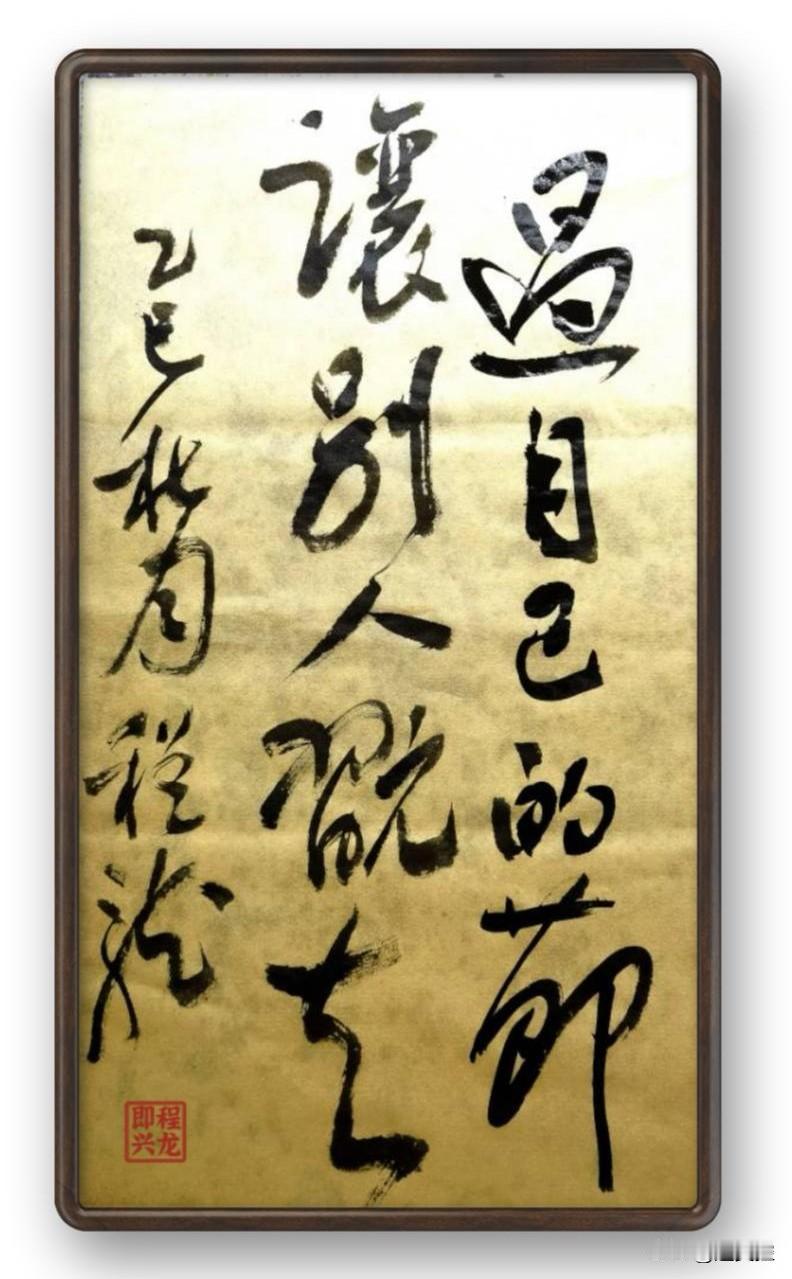 過自己的節
讓別人翫去
乙巳秋月 程龍
程龙
即兴